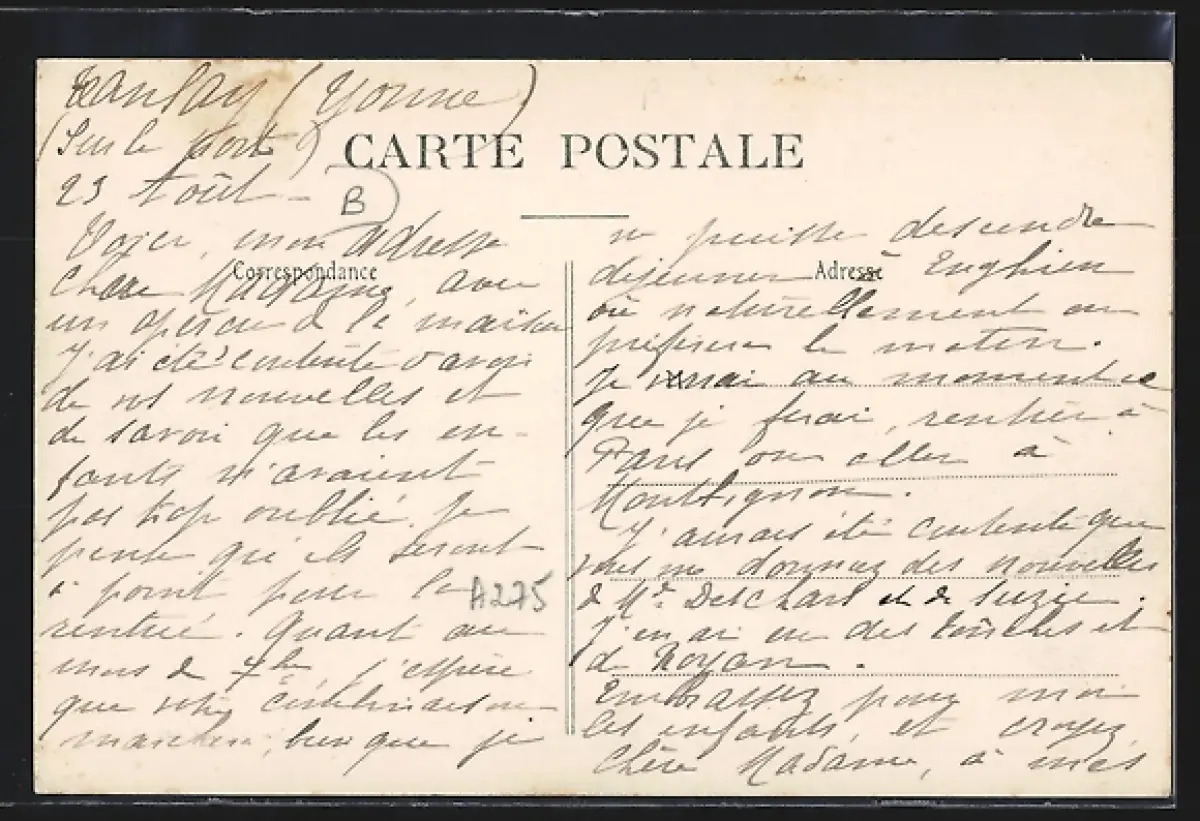 Tanlay (Yonne)
(Sur le port)
23 Août -
CARTE POSTALE
B
Voici, mon adresse
Correspondance
Chère Madame, avec
un aperçu de la maison
J'ai été contente d'avoir
de vos nouvelles et
de savoir que les en-
fants n'avaient
pas trop oublié. Je
pense qu'ils seront
à point pour la
A275
rentrée. Quant au
mois de 7bre, j'espère
que votre combinaison
marchera, bien que je
ne puisse descendre
déjeuner à Enghien
Adresse
où naturellement on
préfèrera le matin.
Je verrai au moment ce
que je ferai, rentrer à
Paris ou aller à
Montlignon.
J'aurais été contente que
vous me donniez des nouvelles
de Mr Deschars et de Suzie.
J'en ai eu des Conches et
de Royan.
Embrassez pour moi
les enfants, et croyez,
Chère Madame, à mes